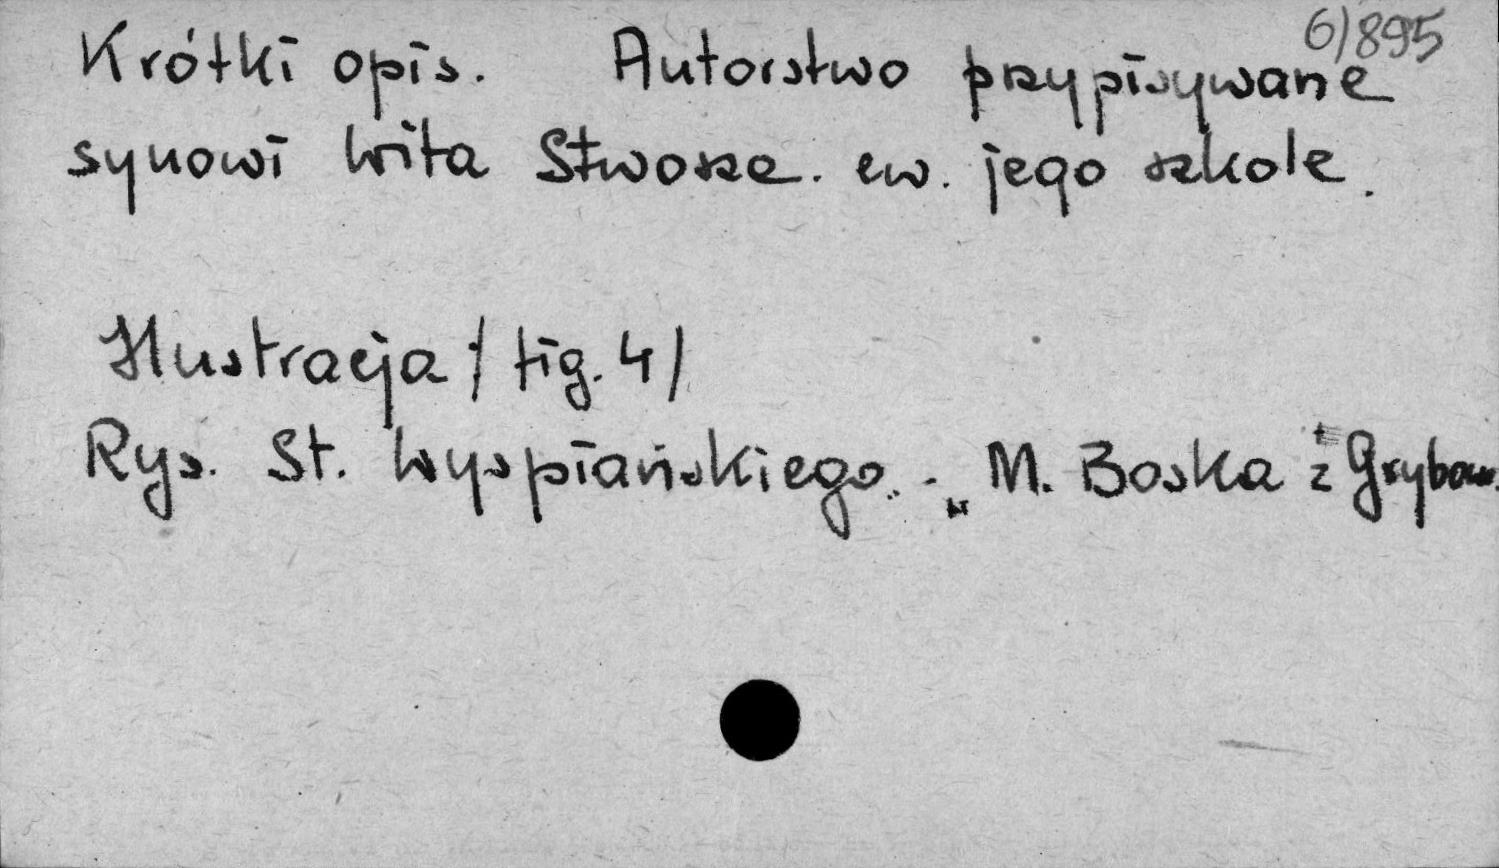 6)895
Krótki opis. Autorstwo przypisywane
synowi Wita Stwosza. ew. jego szkole.
Ilustracja / fig. 4/
Rys. St. Wyspiańskiego. - „M. Boska z Grybow.